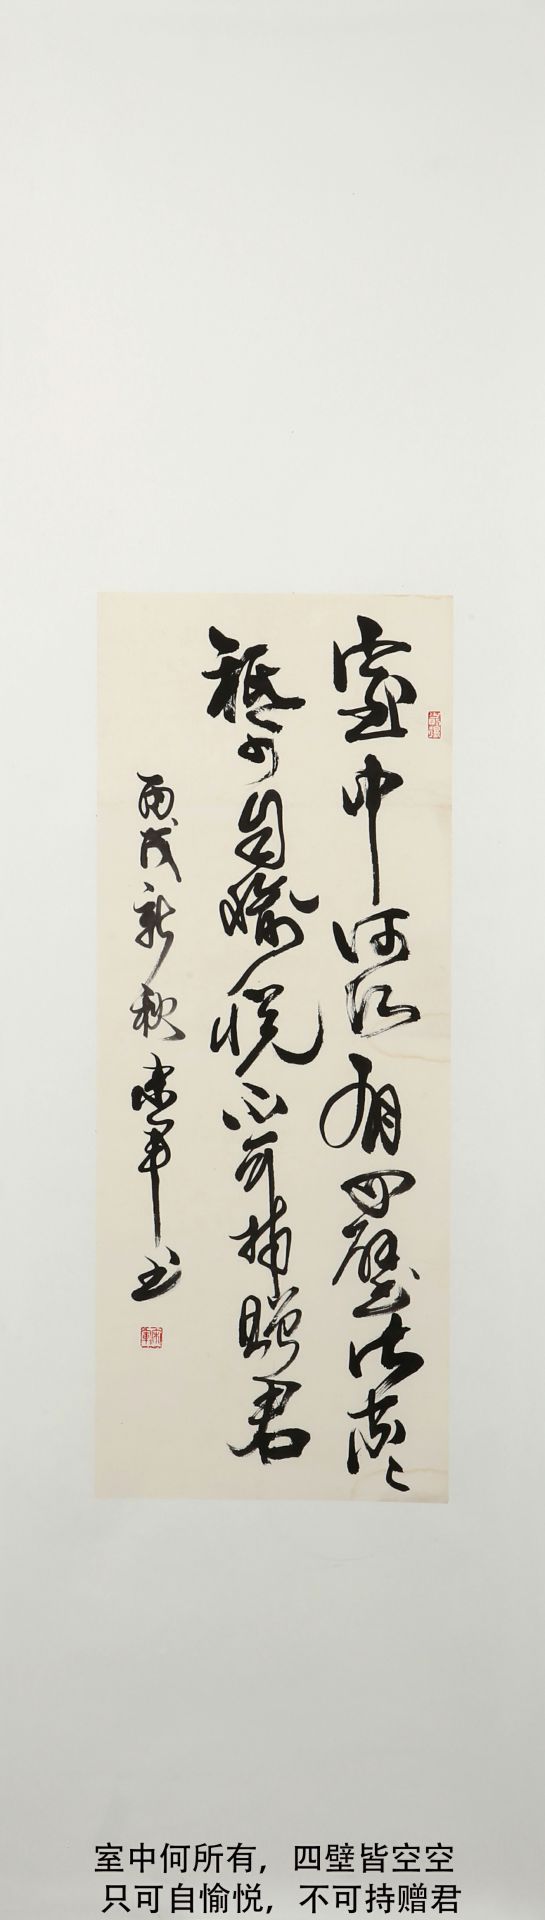 室中何所有四壁皆空々
祗可自愉悦不可持贈君
丙戌新秋 军书
室中何所有，四壁皆空空
只可自愉悦，不可持赠君